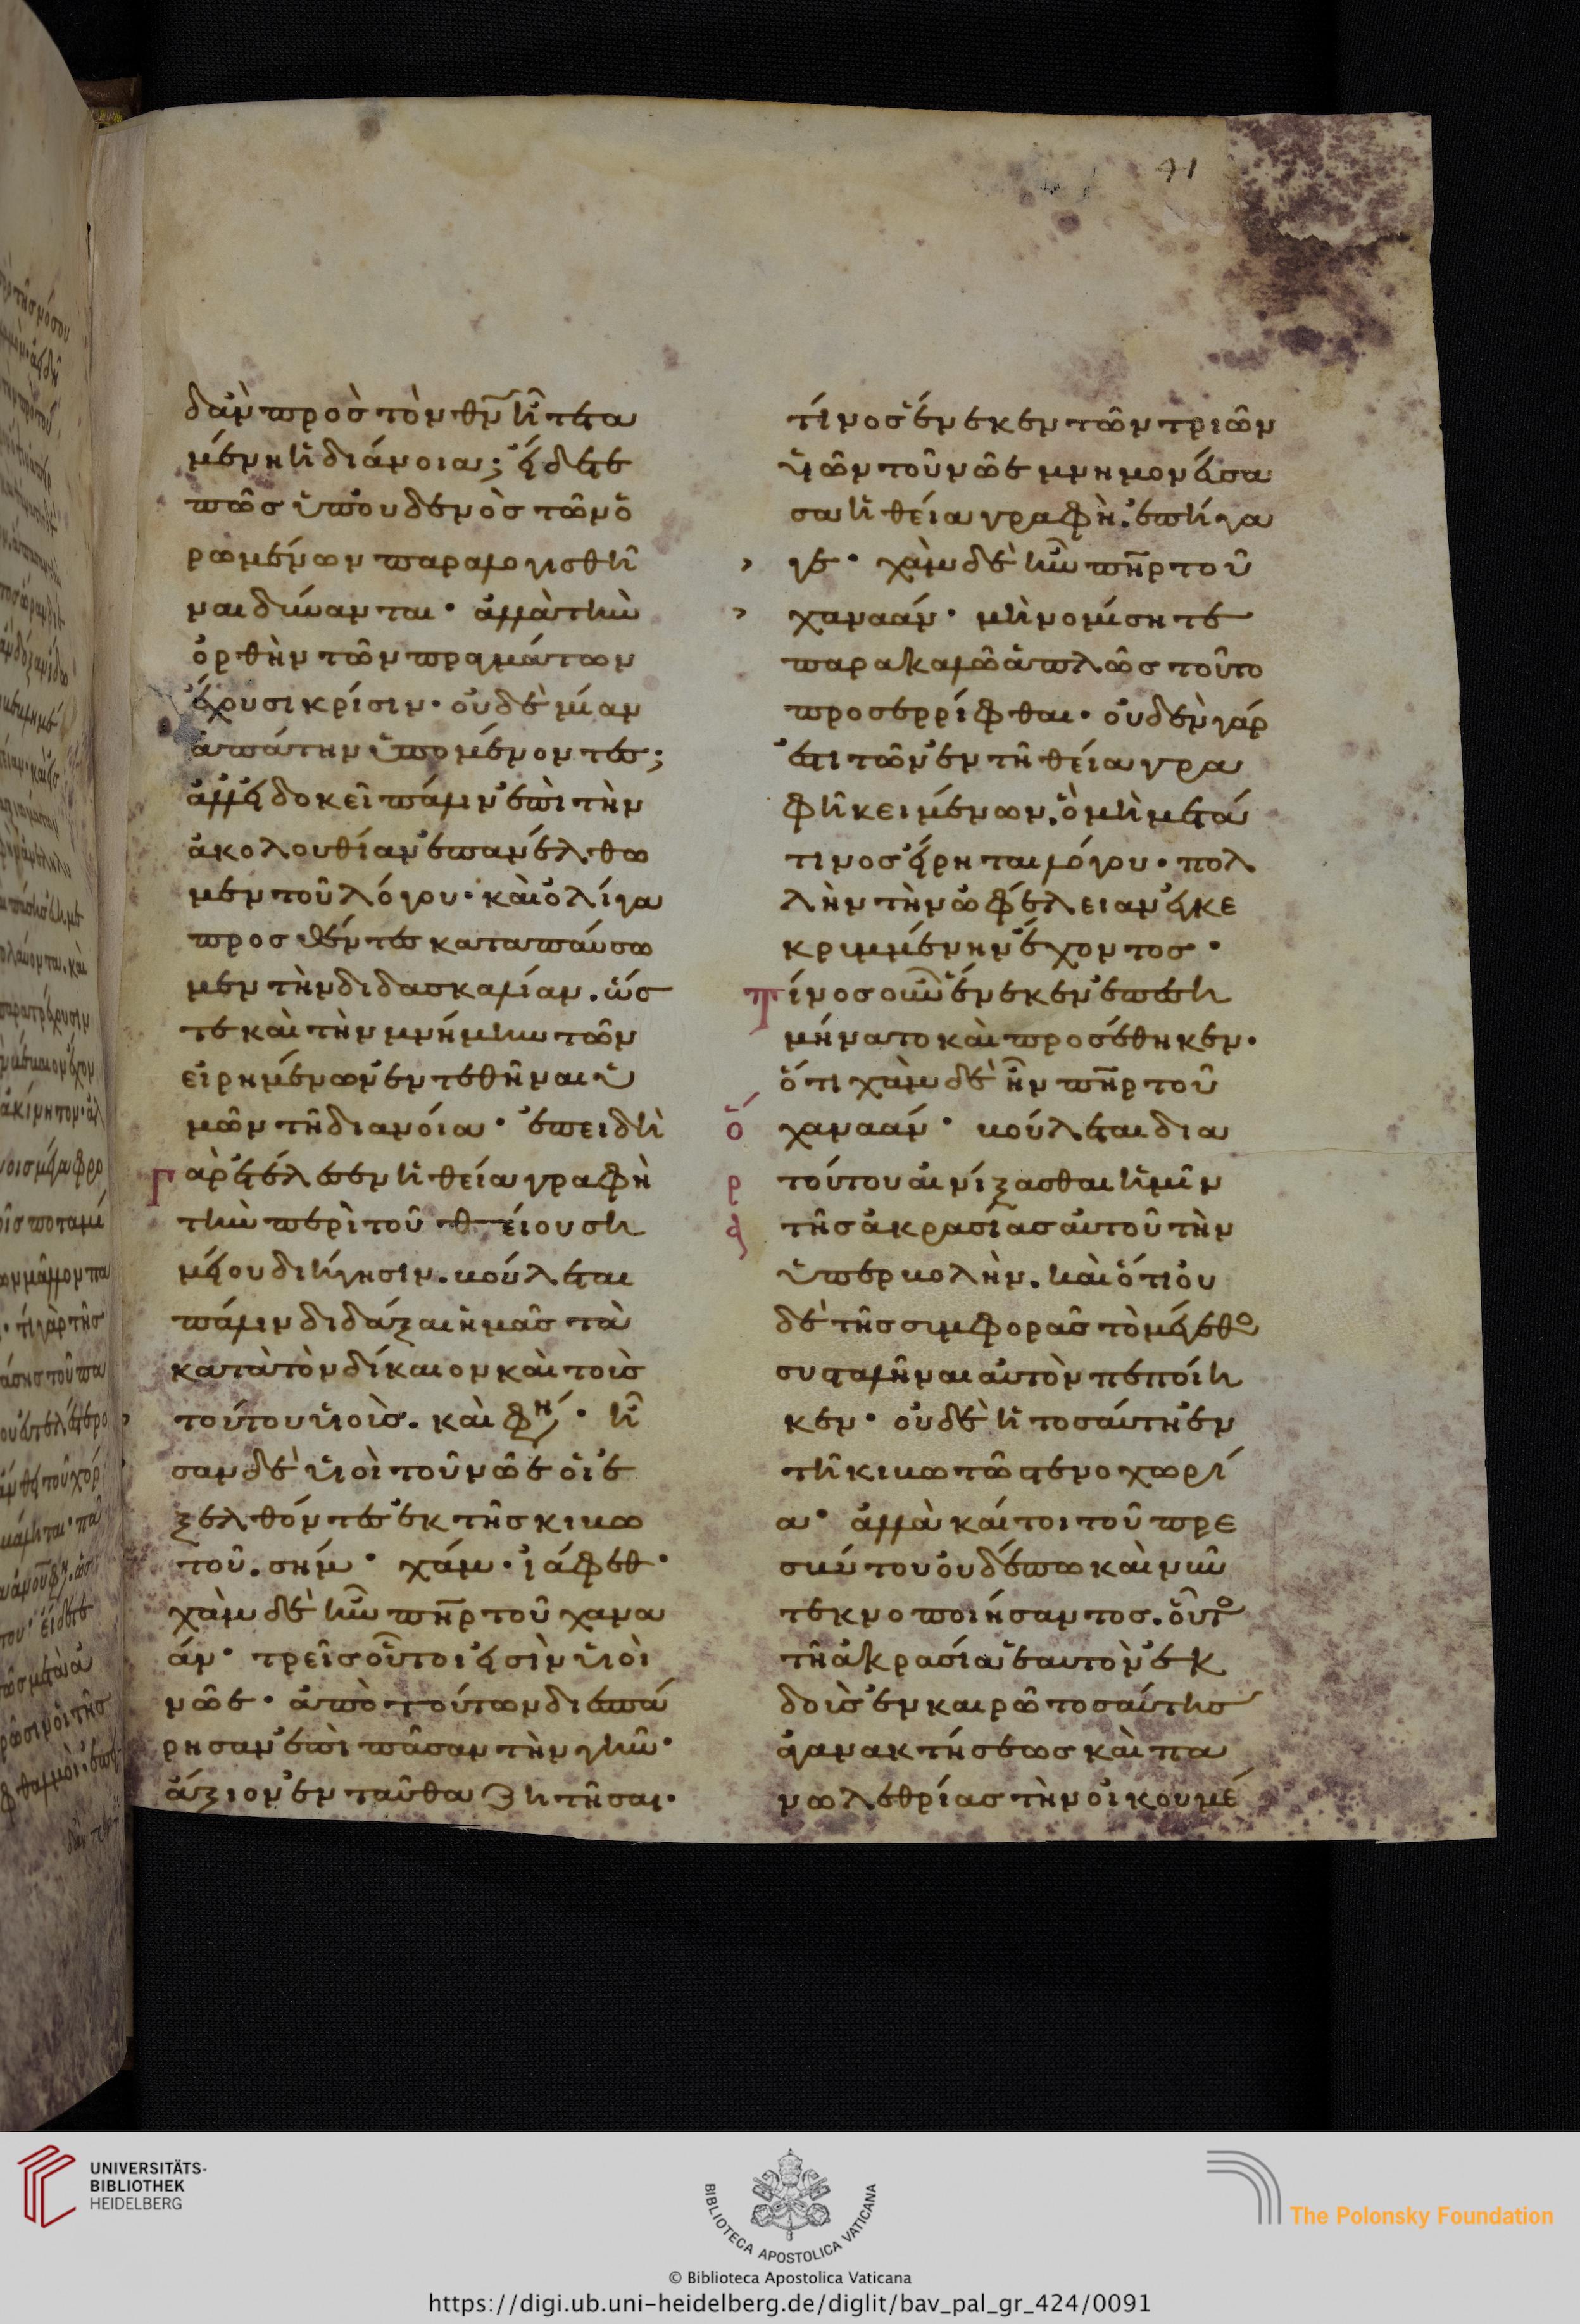 41
δὰν πρὸς τὸν θν ῆ τετα
μένη ἡ διάνοια; εἴδετε
πῶς ὑπ' οὐδενὸς τῶν ὁ
ρωμένων παραλογισθῆ
ναι δύνανται· ἀλλὰ τὴν
ὀρθὴν τῶν πραγμάτων
ἔχουσι κρίσιν· οὐδεμίαν
ἀπάτην ὑπομένοντες;
ἀλλ' εἰ δοκεῖ πάλιν ἐπὶ τὴν
ἀκολουθίαν ἐπανέλθω
μεν τοῦ λόγου· καὶ ὀλίγα
προσθέντες καταπαύσω
μεν τὴν διδασκαλίαν. ὥσ
τε καὶ τὴν μνήμην τῶν
εἰρημένων ἐντεθῆναι ὑ
μῶν τῆ διανοία· ἐπειδὴ
γὰρ ἐτέλεσεν ἡ θεία γραφὴ
τὴν περὶ τοῦ θείου ση
μείου διήγησιν. βούλεται
πάλιν διδάξαι ἡμᾶς τὰ
κατὰ τὸν δίκαιον καὶ τοὺς
τούτου υἱούς. καὶ φη· ἦ
σαν δὲ υἱοὶ τοῦ νῶε οἱ ἐ
ξελθόντες ἐκ τῆς κιβω
τοῦ. σήμ· χάμ· ἰάφεθ·
χὰμ δὲ ἦν πηρ τοῦ χανα
άν· τρεῖς οὗτοι εἰσὶν υἱοὶ
νῶε· ἀπὸ τούτων διεσπά
ρησαν ἐπὶ πᾶσαν τὴν γῆν·
ἄξιον ἐνταῦθα ζητῆσαι·
τίνος ἕνεκεν τῶν τριῶν
υἱῶν τοῦ νῶε μνημονεύσα
σα ἡ θεία γραφὴ. ἐπήγα
γε· χὰμ δὲ ἦν πηρ τοῦ
χαναάν· μὴ νομίσητε
παρακαλῶ ἁπλῶς τοῦτο
προσερρίφθαι· οὐδὲν γάρ
ἐστι τῶν ἐν τῆ θεία γρα
φῆ κειμένων. ὃ μὴ μετά
τινος εἴρηται λόγου· πολ
λὴν τὴν ὠφέλειαν ἐγκε
κριμμένην ἔχοντος·
Τίνος οὖν ἕνεκεν ἐπεση
μήνατο καὶ προσέθηκεν·
ὅτι χὰμ δὲ ἦν πηρ τοῦ
χαναάν· βούλεται δια
τούτου αἰνίξασθαι ἡμῖν
τῆς ἀκρασίας αὐτοῦ τὴν
ὑπερβολὴν. καὶ ὅτι οὐ
δὲ τῆς συμφορᾶς τὸ μέγεθο
συσταλῆναι αὐτὸν πεποίη
κεν· οὐδὲ ἡ τοσαύτη ἐν
τῆ κιβωτῶ στενοχωρί
α· ἀλλὰ καίτοι τοῦ πρε
σβύτου οὐδέπω καὶ νῦν
τεκνοποιήσαντος. οὗτο
τῆ ἀκρασία ἑαυτὸν ἐκ
δοὺς ἐν καιρῶ τοσαύτης
ἀγανακτήσεως καὶ πα
νωλεθρίας τὴν οἰκουμέ
UNIVERSITÄTS-
BIBLIOTHEK
HEIDELBERG
BIBLIOTECA APOSTOLICA VATICANA
The Polonsky Foundation
© Biblioteca Apostolica Vaticana
https://digi.ub.uni-heidelberg.de/diglit/bav_pal_gr_424/0091